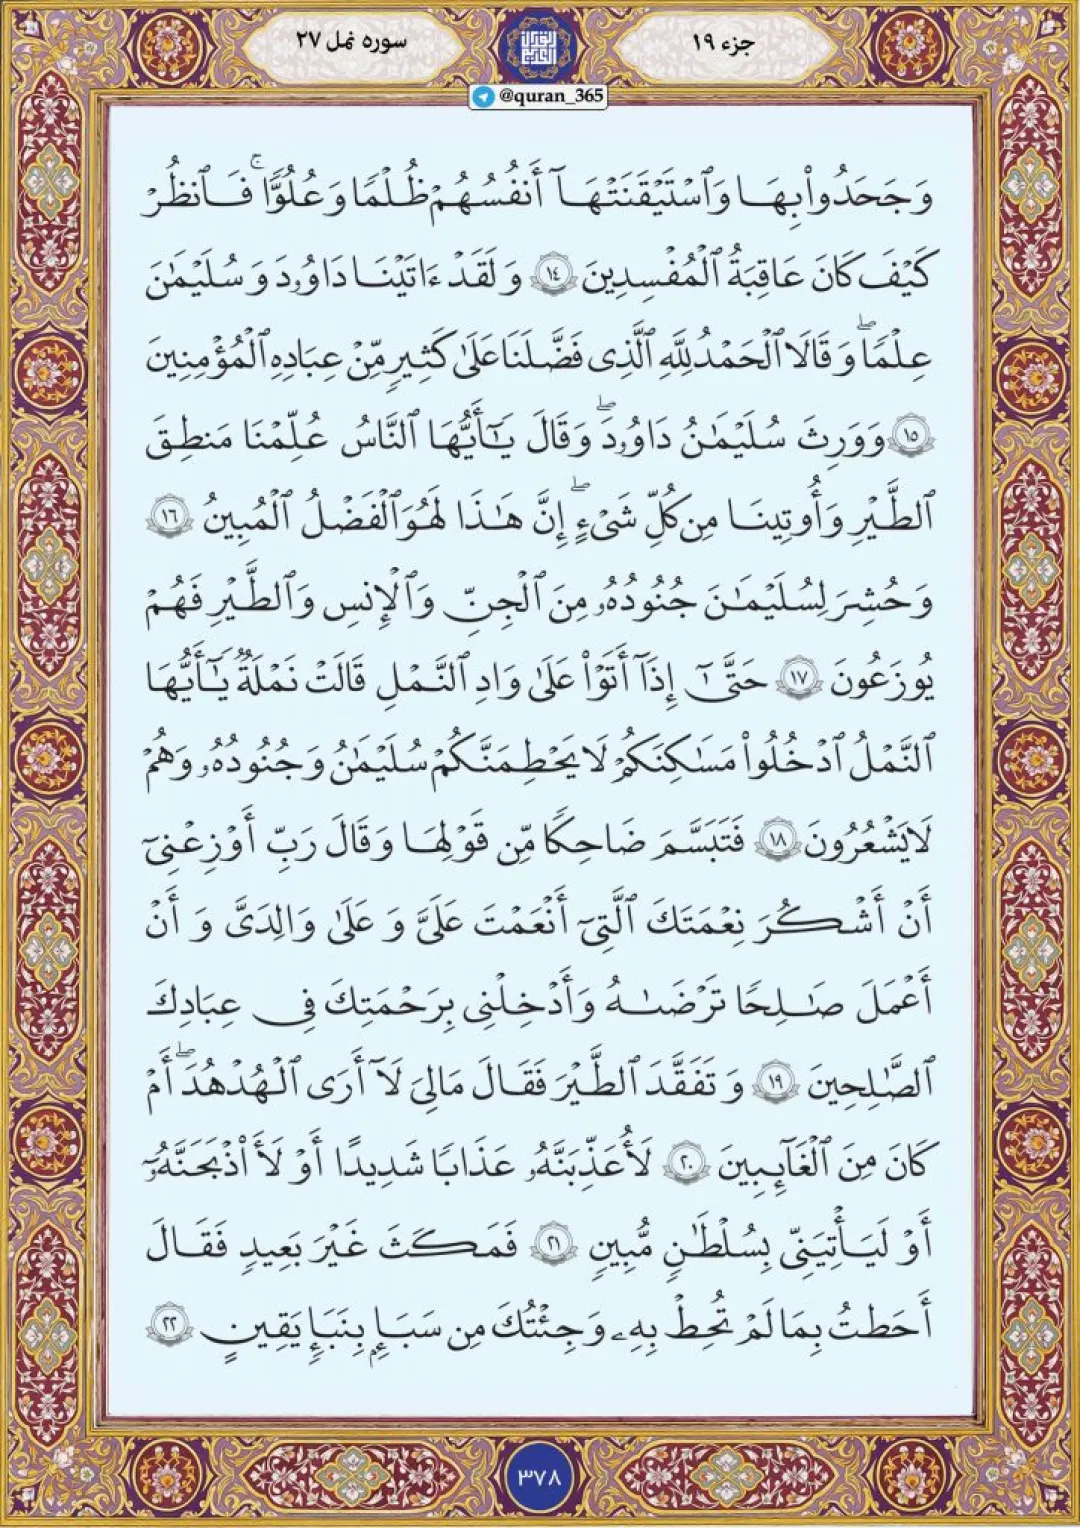 جزء ۱۹
سوره نمل ۲۷
@quran_365
وَجَحَدُوا۟ بِهَا وَٱسْتَيْقَنَتْهَآ أَنفُسُهُمْ ظُلْمًا وَعُلُوًّا ۚ فَٱنظُرْ
كَيْفَ كَانَ عَاقِبَةُ ٱلْمُفْسِدِينَ ١٤ وَلَقَدْ ءَاتَيْنَا دَاوُۥدَ وَسُلَيْمَـٰنَ
عِلْمًا ۖ وَقَالَا ٱلْحَمْدُ لِلَّهِ ٱلَّذِى فَضَّلَنَا عَلَىٰ كَثِيرٍ مِّنْ عِبَادِهِ ٱلْمُؤْمِنِينَ
١٥ وَوَرِثَ سُلَيْمَـٰنُ دَاوُۥدَ ۖ وَقَالَ يَـٰٓأَيُّهَا ٱلنَّاسُ عُلِّمْنَا مَنطِقَ
ٱلطَّيْرِ وَأُوتِينَا مِن كُلِّ شَىْءٍ ۖ إِنَّ هَـٰذَا لَهُوَ ٱلْفَضْلُ ٱلْمُبِينُ ١٦
وَحُشِرَ لِسُلَيْمَـٰنَ جُنُودُهُۥ مِنَ ٱلْجِنِّ وَٱلْإِنسِ وَٱلطَّيْرِ فَهُمْ
يُوزَعُونَ ١٧ حَتَّىٰٓ إِذَآ أَتَوْا۟ عَلَىٰ وَادِ ٱلنَّمْلِ قَالَتْ نَمْلَةٌ يَـٰٓأَيُّهَا
ٱلنَّمْلُ ٱدْخُلُوا۟ مَسَـٰكِنَكُمْ لَا يَحْطِمَنَّكُمْ سُلَيْمَـٰنُ وَجُنُودُهُۥ وَهُمْ
لَا يَشْعُرُونَ ١٨ فَتَبَسَّمَ ضَاحِكًا مِّن قَوْلِهَا وَقَالَ رَبِّ أَوْزِعْنِىٓ
أَنْ أَشْكُرَ نِعْمَتَكَ ٱلَّتِىٓ أَنْعَمْتَ عَلَىَّ وَعَلَىٰ وَٰلِدَىَّ وَأَنْ
أَعْمَلَ صَـٰلِحًا تَرْضَىٰهُ وَأَدْخِلْنِى بِرَحْمَتِكَ فِى عِبَادِكَ
ٱلصَّـٰلِحِينَ ١٩ وَتَفَقَّدَ ٱلطَّيْرَ فَقَالَ مَالِىَ لَآ أَرَى ٱلْهُدْهُدَ ۖ أَمْ
كَانَ مِنَ ٱلْغَآئِبِينَ ٢٠ لَأُعَذِّبَنَّهُۥ عَذَابًا شَدِيدًا أَوْ لَأَا۟ذْبَحَنَّهُۥٓ
أَوْ لَيَأْتِيَنِّى بِسُلْطَـٰنٍ مُّبِينٍ ٢١ فَمَكَثَ غَيْرَ بَعِيدٍ فَقَالَ
أَحَطتُ بِمَا لَمْ تُحِطْ بِهِۦ وَجِئْتُكَ مِن سَبَإٍۭ بِنَبَإٍ يَقِينٍ ٢٢
۳۷۸